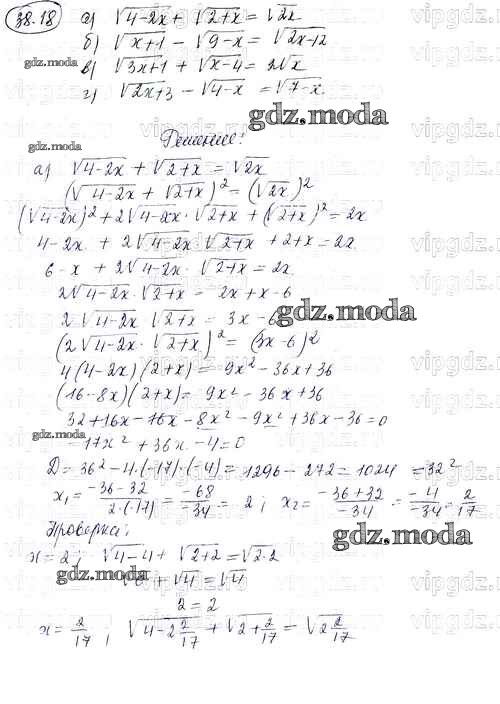 38.18 а) √4-2x + √2+x = √2x
б) √x+1 - √9-x = √2x-12
в) √3x+1 + √x-4 = 2√x
г) √2x+3 - √4-x = √7-x
gdz.moda
gdz.moda
Решение:
gdz.moda
а) √4-2x + √2+x = √2x
(√4-2x + √2+x)² = (√2x)²
(√4-2x)² + 2√4-2x · √2+x + (√2+x)² = 2x
4-2x + 2√4-2x √2+x + 2+x = 2x
6-x + 2√4-2x · √2+x = 2x
2√4-2x · √2+x = 2x+x-6
2√4-2x √2+x = 3x-6
gdz.moda
(2√4-2x · √2+x)² = (3x-6)²
4(4-2x)(2+x) = 9x²-36x+36
(16-8x)(2+x) = 9x²-36x+36
32+16x-16x-8x²-9x²+36x-36=0
gdz.moda
-17x²+36x-4=0
D=36²-4·(-17)·(-4)=1296-272=1024=32²
x₁= -36-32 / 2·(-17) = -68 / -34 = 2; x₂= -36+32 / -34 = -4 / -34 = 2/17
Проверка:
x=2; √4-4 + √2+2 = √2·2
gdz.moda
+ √4 = √4
2=2
gdz.moda
x= 2/17; √4-2 2/17 + √2+ 2/17 = √2 2/17